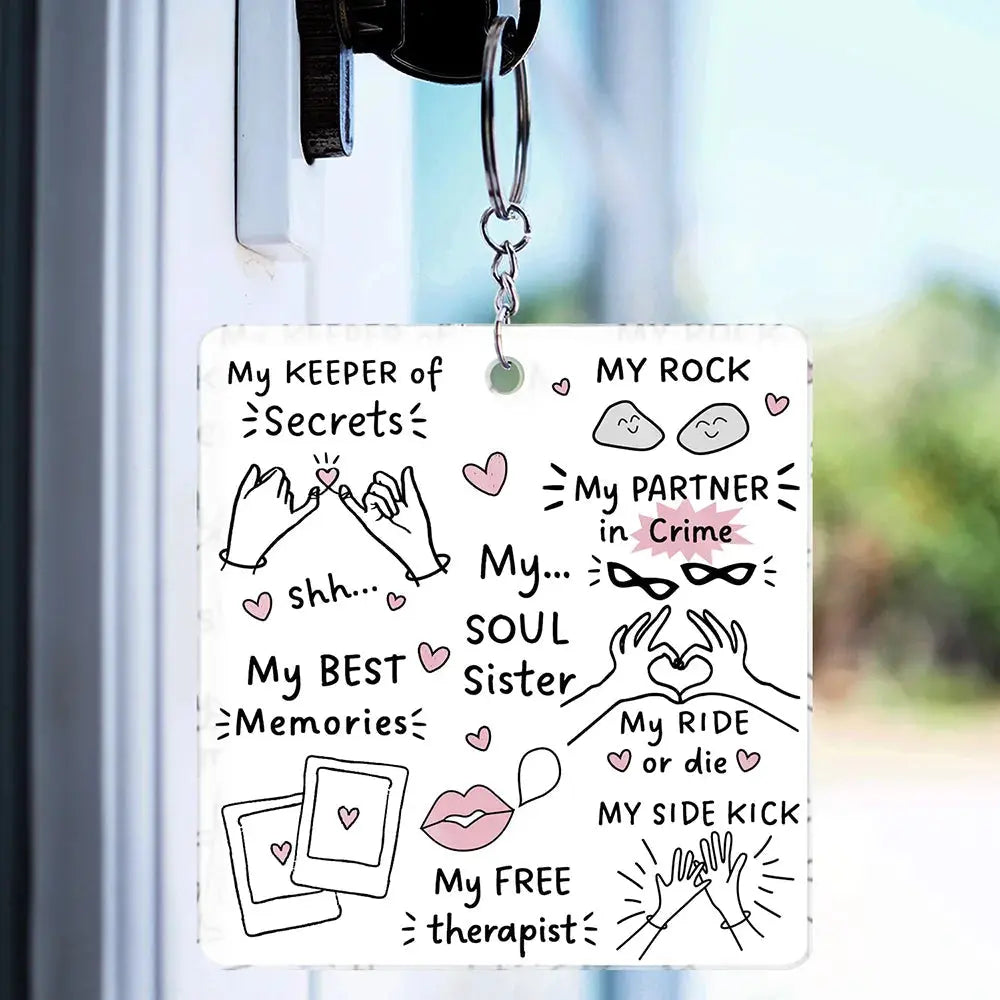 My KEEPER of
Secrets
shh...
My BEST
Memories
My...
SOUL
Sister
My FREE
therapist
MY ROCK
My PARTNER
in Crime
My RIDE
or die
MY SIDE KICK